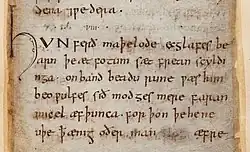 dena ⁊ ƿedera
HVN ferð maþelode ecglafes be
arn þe æt fotum sæt frean scyldi
nga onband beadu rune ƿæs him
beoƿulfes sið modges mere faran
micel æfþunca forþon þe he ne
uþe ꝥ ænig oðer man æfre